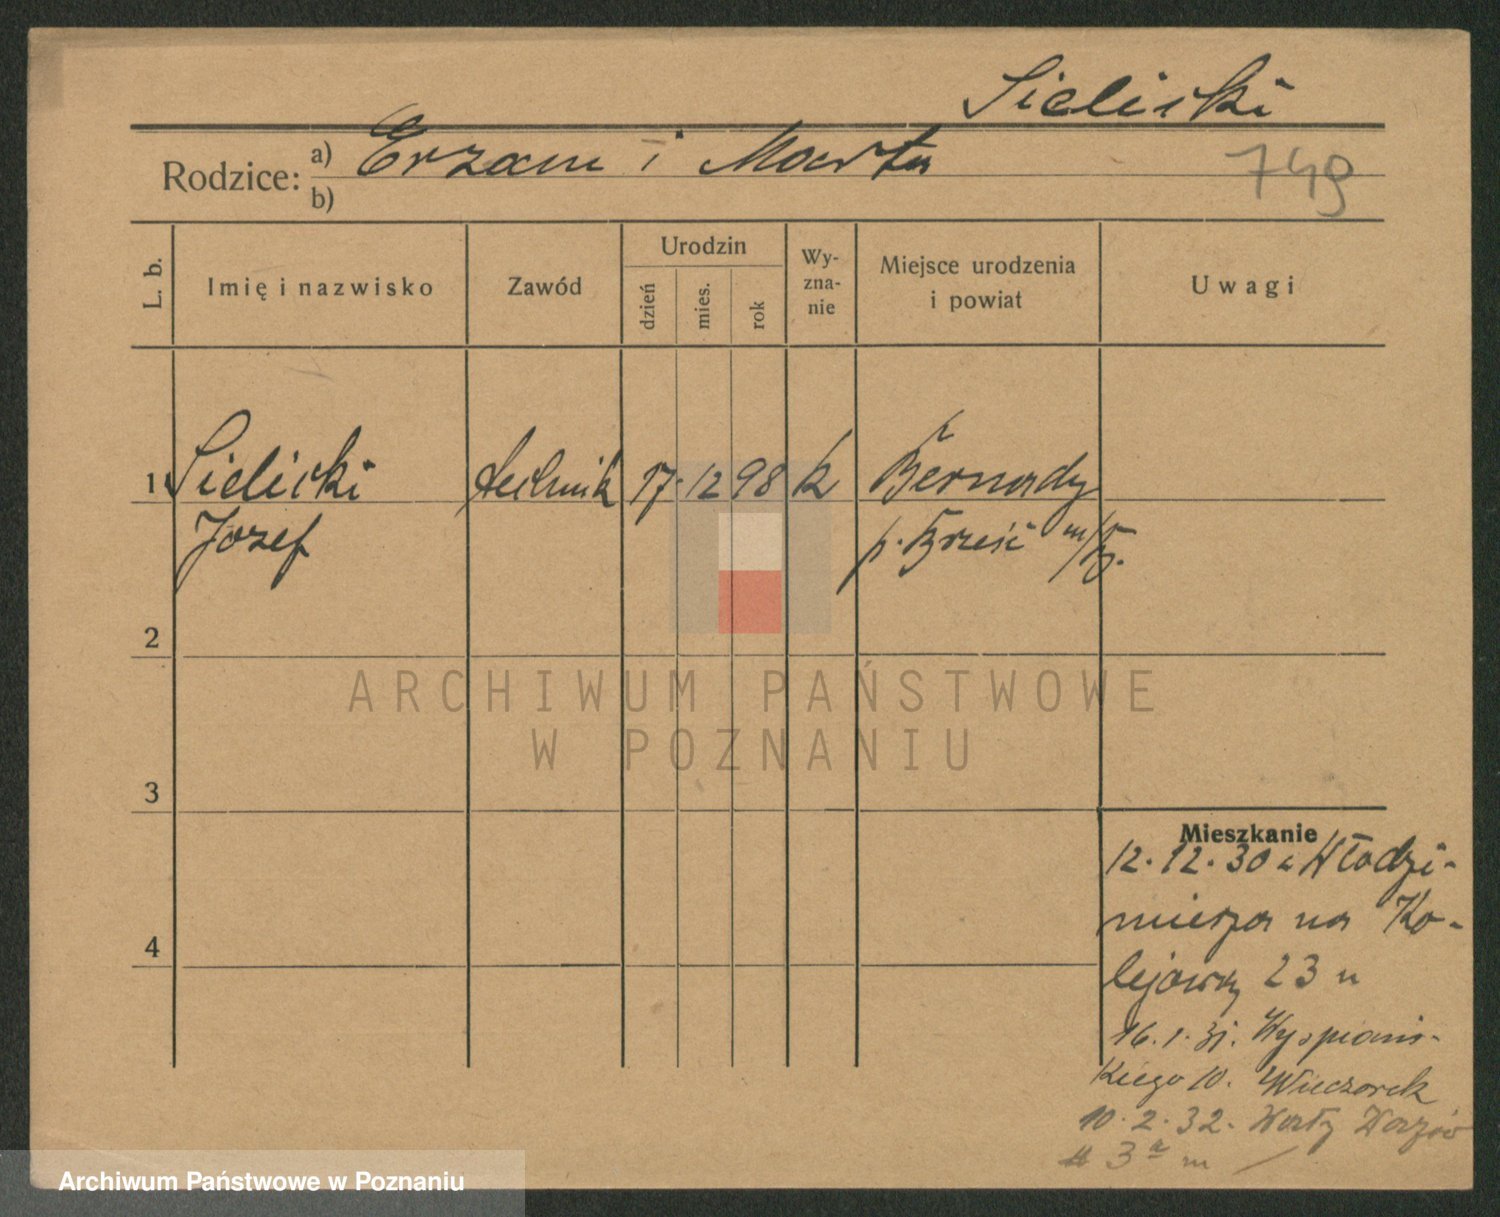 Sielicki
Rodzice: a) Erzam i Marta
b)
749
L. b.
Imię i nazwisko
Zawód
Urodzin
dzień
mies.
rok
Wy-
zna-
nie
Miejsce urodzenia
i powiat
Uwagi
1 Sielicki technik 17. 12 98 k Bernady
Józef p. Brześć n/B.
2
3
4
Mieszkanie
12.12.30 z Włodzi-
mierza na Ko-
lejową 23
16.1.31. Wyspiańs-
kiego 10. Wieczorek
10.2.32. Wały
3a m
ARCHIWUM PAŃSTWOWE
W POZNANIU
Archiwum Państwowe w Poznaniu